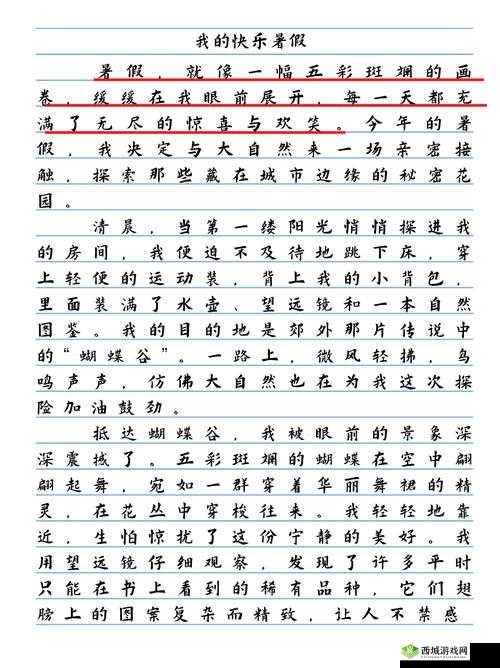 我的快乐暑假
暑假，就像一幅五彩斑斓的画
卷，缓缓在我眼前展开，每一天都充
满了无尽的惊喜与欢笑。今年的暑
假，我决定与大自然来一场亲密接
触，探索那些藏在城市边缘的秘密花
园。
清晨，当第一缕阳光悄悄探进我
的房间，我便迫不及待地跳下床，穿
上轻便的运动装，背上我的小背包，
里面装满了水壶、望远镜和一本自然
图鉴。我的目的地是郊外那片传说中
的“蝴蝶谷”。一路上，微风轻拂，鸟
鸣声声，仿佛大自然也在为我这次探
险加油鼓劲。
抵达蝴蝶谷，我被眼前的景象深
深震撼了。五彩斑斓的蝴蝶在空中翩
翩起舞，宛如一群穿着华丽舞裙的精
灵，在花丛中穿梭往来。我轻轻地靠
近，生怕惊扰了这份宁静的美好。我
用望远镜仔细观察，发现了许多平时
只能在书上看到的稀有品种，它们翅
膀上的图案复杂而精致，让人不禁感
西城游戏网